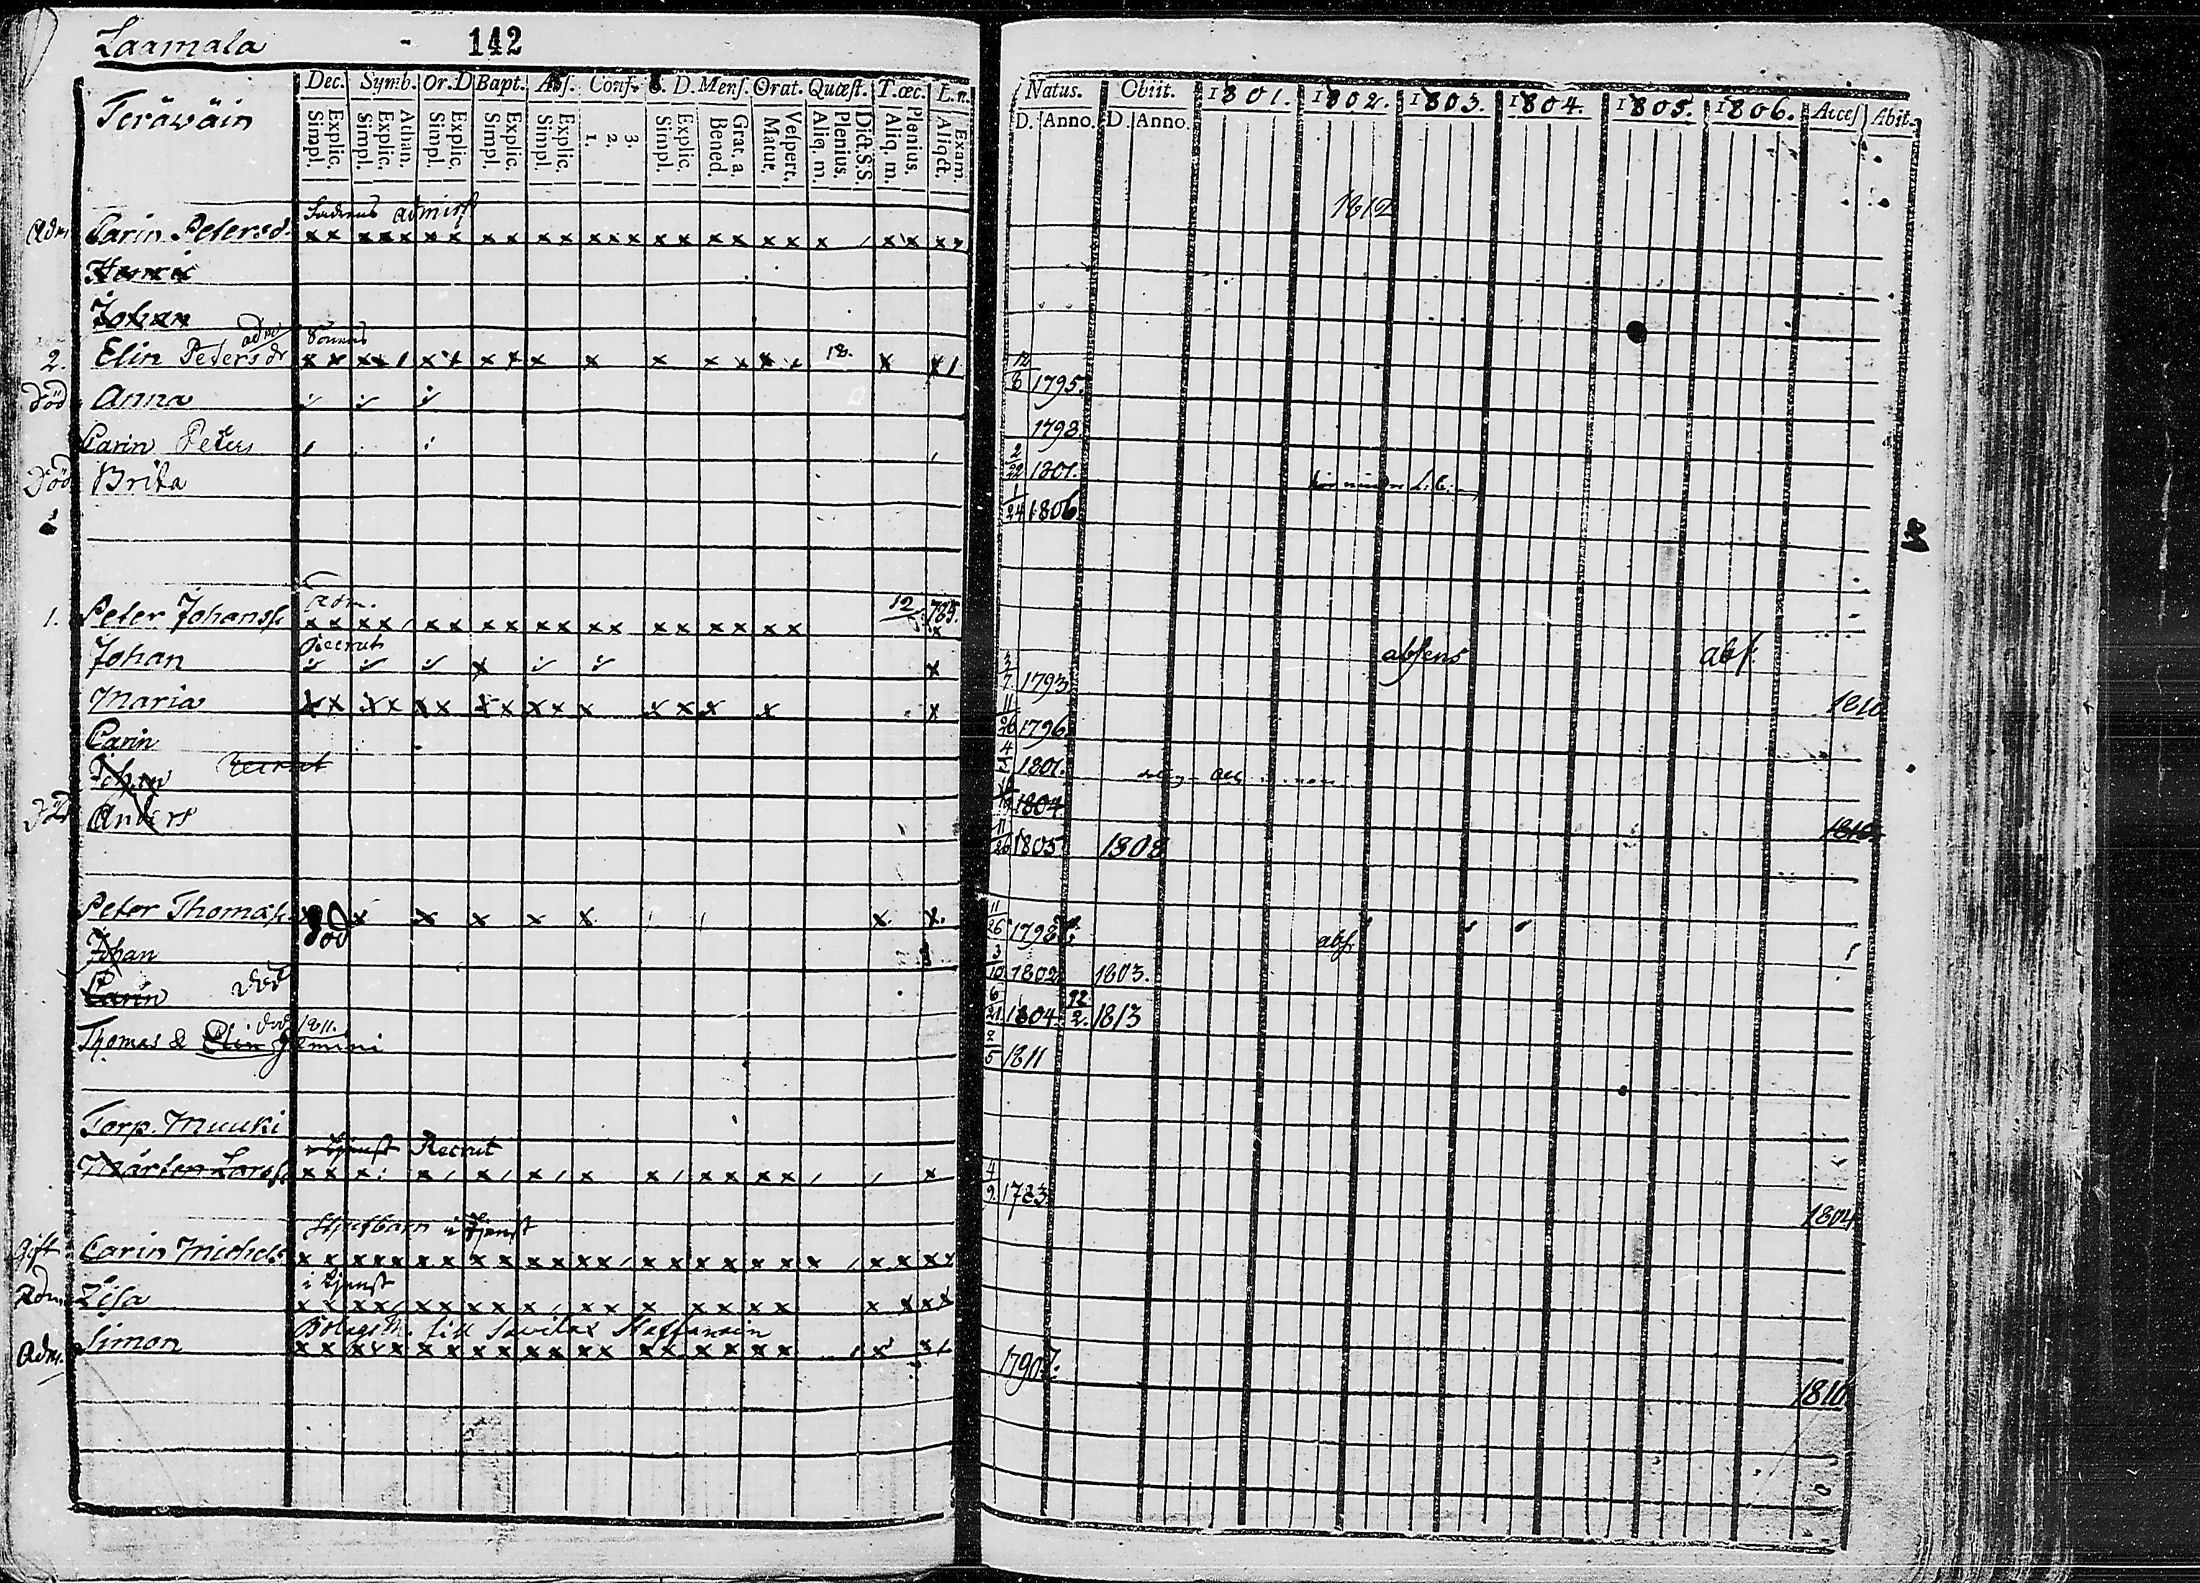 Laamala - 142
Dec. Symb. Or. D Bapt. Abs. Conf. S. D. Mens. Orat. Quæst. T. œc. L. n.
Teräwäin
Simpl. Explic. Simpl. Explic. Athan. Simpl. Explic. Simpl. Explic. Simpl. Explic. 1. 2. 3. Simpl. Explic. Bened. Grat. a. Matut. Vespert. Aliq. m. Plenius. Dict. S. S. Aliq. m. Plenius. Aliqd. Exam.
Adm Carin Petersd.
Henric
Johan
2. Elin Petersdr adm 18.
död Anna
Carin Peters
död Brita
Adm.
1. Peter Johanss. 12 785.
Recrut
Johan
Maria
Carin
Johan Recrut
död Anders
Peter Thomass.
död
Johan
Carin död
död 1811.
Thomas & Elin gemini
Torp. Muuki
i tjenst Recrut
Mårten Larss.
Styfbarn i tjenst
Gift Carin Michels
i tjenst
Adm. Lisa
Adm. Simon
Natus. Obiit. 1801. 1802. 1803. 1804. 1805. 1806. Access Abit.
D. Anno. D. Anno.
1812
12/8 1795.
1798.
2/22 1801.
1/24 1806
absens abs.
3/7 1793
1810
11/26 1796
4 1801.
1804
1810
11/26 1805 1808
11/26 1798
abs.
3/10 1802 1803.
6/21 1804. 22/2. 1813
2/5 1811
4/9. 1783
1804
1790
1810